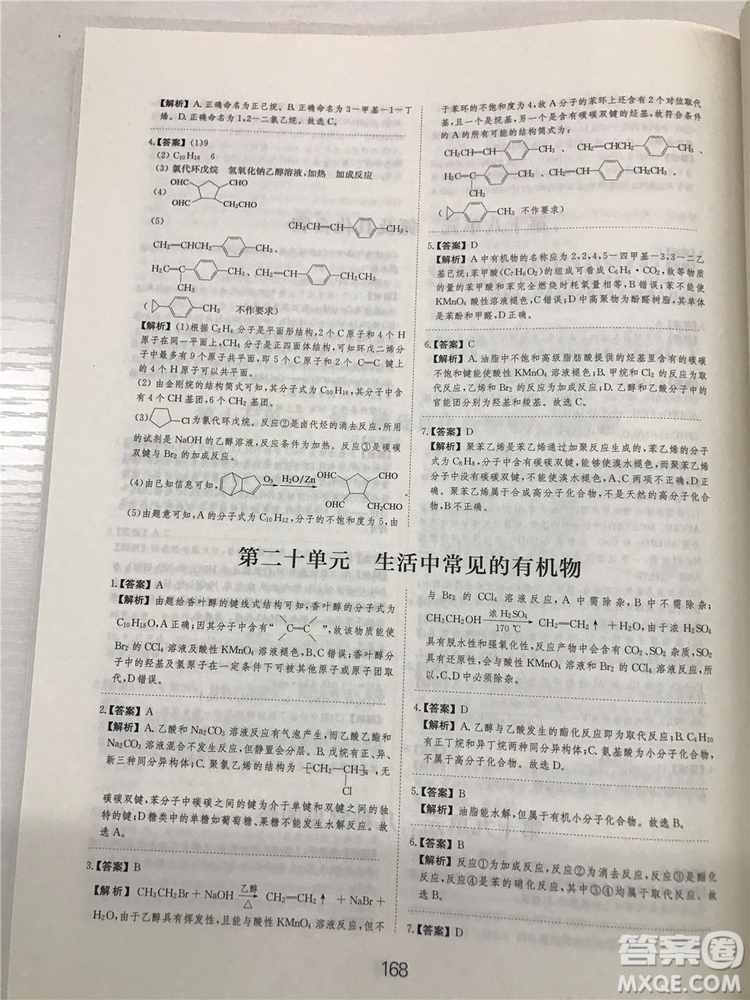 【解析】A. 正确命名为正己烷。B. 正确命名为3－甲基－1－丁
烯。D. 正确命名为1,2－二氯乙烷。故选C。
4.【答案】(1)9
(2)C₁₀H₁₆ 6
(3)氯代环戊烷 氢氧化钠乙醇溶液,加热 加成反应
(4) OHC CHO
OHC CH₂CHO
(5) CH₃CH=CH— —CH₃
CH₂=CHCH₂— —CH₃、
H₂C=C— —CH₃、CH₂=CH— —CH₂CH₃
CH₃
( — —CH₃ 不作要求)
【解析】(1)根据C₂H₄分子是平面形结构,2个C原子和4个H
原子在同一平面上,CH₄分子是正四面体结构,可知环戊二烯分
子中最多有9个原子共平面,即5个C原子和2个C=C键上
的4个H原子可以共平面。
(2)由金刚烷的结构可知,其分子式为C₁₀H₁₆,其分子中含
有4个CH基团,6个CH₂基团。
(3) —Cl为氯代环戊烷。反应②是卤代烃的消去反应,所用
的试剂是NaOH的乙醇溶液,反应条件为加热。反应③是碳碳
双键与Br₂的加成反应。
(4)由已知信息可知, O₃ H₂O/Zn OHC CHO
OHC CH₂CHO
(5)由题意可知,A的分子式为C₁₀H₁₂,分子的不饱和度为5,由
于苯环的不饱和度为4,故A分子的苯环上还含有2个对位取代
基,且一个是烷基,另一个是含有碳碳双键的烃基,故符合条件
的A的所有可能的结构简式为:
CH₃CH=CH— —CH₃、CH₂=CHCH₂— —CH₃、
H₂C=C— —CH₃、CH₂=CH— —CH₂CH₃
CH₃
( — —CH₃ 不作要求)
5.【答案】D
【解析】A中有机物的名称应为2,2,4,5－四甲基－3,3－二乙
基己烷;苯甲酸(C₇H₆O₂)的组成可看成C₆H₆·CO₂,故等物质
的量的苯甲酸和苯完全燃烧时耗氧量相等,B错误;苯不能使
KMnO₄酸性溶液褪色,C错误;D中高聚物为酚醛树脂,其单体
为苯酚和甲醛,D正确。
6.【答案】C
【解析】A. 油脂中不饱和高级脂肪酸提供的烃基里含有的碳碳
不饱和键能使酸性KMnO₄溶液褪色。B. 甲烷和Cl₂的反应为取
代反应,乙烯和Br₂的反应为加成反应。D. 乙醇和乙酸中含有的
官能团分别为羟基和羧基。故选C。
7.【答案】D
【解析】聚苯乙烯是苯乙烯通过加聚反应生成的。苯乙烯的分子
式为C₈H₈,分子中含有碳碳双键,能够使溴水褪色。而聚苯乙烯
分子中没有碳碳双键,不能使溴水褪色,A、C两项不正确,D项
正确。聚苯乙烯属于合成高分子化合物,不是天然的高分子化合
物,B不正确。
第二十单元 生活中常见的有机物
1.【答案】A
【解析】由题给香叶醇的键线式结构可知,香叶醇的分子式为
C₁₀H₁₈O,A正确;因其分子中含有“ C=C ”,故该物质能使
Br₂的CCl₄溶液及酸性KMnO₄溶液褪色,B、C错误;香叶醇分
子中的羟基及氢原子在一定条件下可被其他原子或原子团取
代,D错误。
2.【答案】A
【解析】A. 乙酸和Na₂CO₃溶液反应有气泡产生,而乙酸乙酯与
Na₂CO₃溶液混合不发生反应,但静置会分层。B. 戊烷有正、异、
新三种同分异构体。C. 聚氯乙烯的结构简式为 CH₂—CH ₙ,无
Cl
碳碳双键,苯分子中碳碳之间的键为介于单键和双键之间的独
特的键;D糖类中的单糖如葡萄糖、果糖不能发生水解反应。故
选A。
3.【答案】B
【解析】CH₃CH₂Br＋NaOH 乙醇 △ CH₂=CH₂↑＋NaBr＋
H₂O,由于乙醇具有挥发性,且能与酸性KMnO₄溶液反应,但不
与Br₂的CCl₄溶液反应,A中需除杂,B中不需除杂。
CH₃CH₂OH 浓H₂SO₄ 170 ℃ CH₂=CH₂↑＋H₂O,由于浓H₂SO₄
具有脱水性和强氧化性,反应产物中会有CO₂、SO₂生成,SO₂能
还原酸性KMnO₄溶液和Br₂的CCl₄溶液,影响乙烯的检验,所
以,C、D实验中必须除杂。
4.【答案】D
【解析】A. 乙醇与乙酸发生的酯化反应即为取代反应;B. C₄H₁₀
有正丁烷和异丁烷两种同分异构体;C. 氨基酸为小分子化合物,
不属于高分子化合物。故选D。
5.【答案】B
【解析】油脂能水解,但属于有机小分子化合物。故选B。
6.【答案】B
【解析】反应①为加成反应,反应②为消去反应,反应③是酯化
反应,反应④是苯的硝化反应,其中③④均为取代反应。故选B。
7.【答案】D
168
答案圈
MXQE.COM